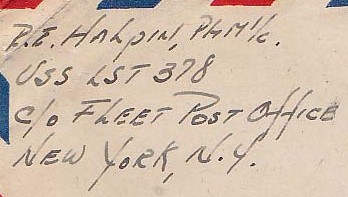 R.E. Halpin, PHM1/c.
USS LST 378
c/o Fleet Post Office
New York, N.Y.